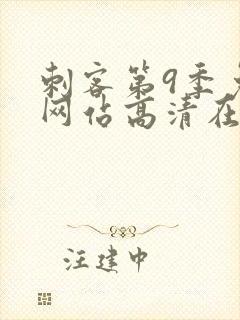 刺客第9季
网佔高清在
汪建中